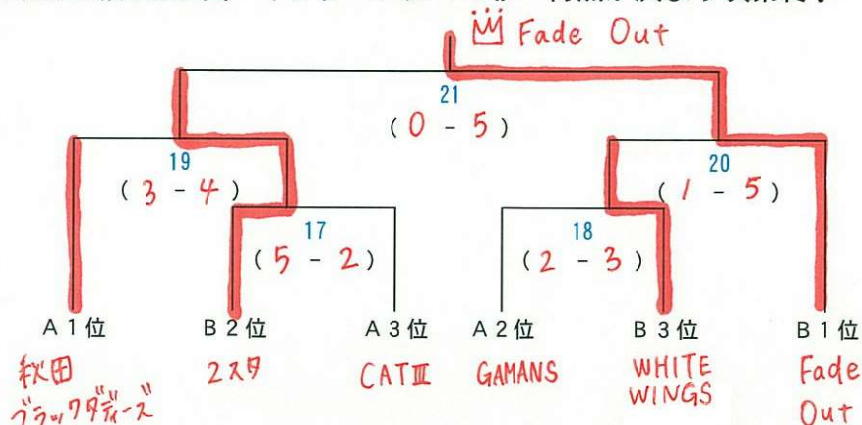 Fade Out
21
( 0 - 5 )
19
( 3 - 4 )
20
( 1 - 5 )
17
( 5 - 2 )
18
( 2 - 3 )
A1位
B2位
A3位
A2位
B3位
B1位
秋田
ブラックダディーズ
2スタ
CATⅢ
GAMANS
WHITE
WINGS
Fade
Out